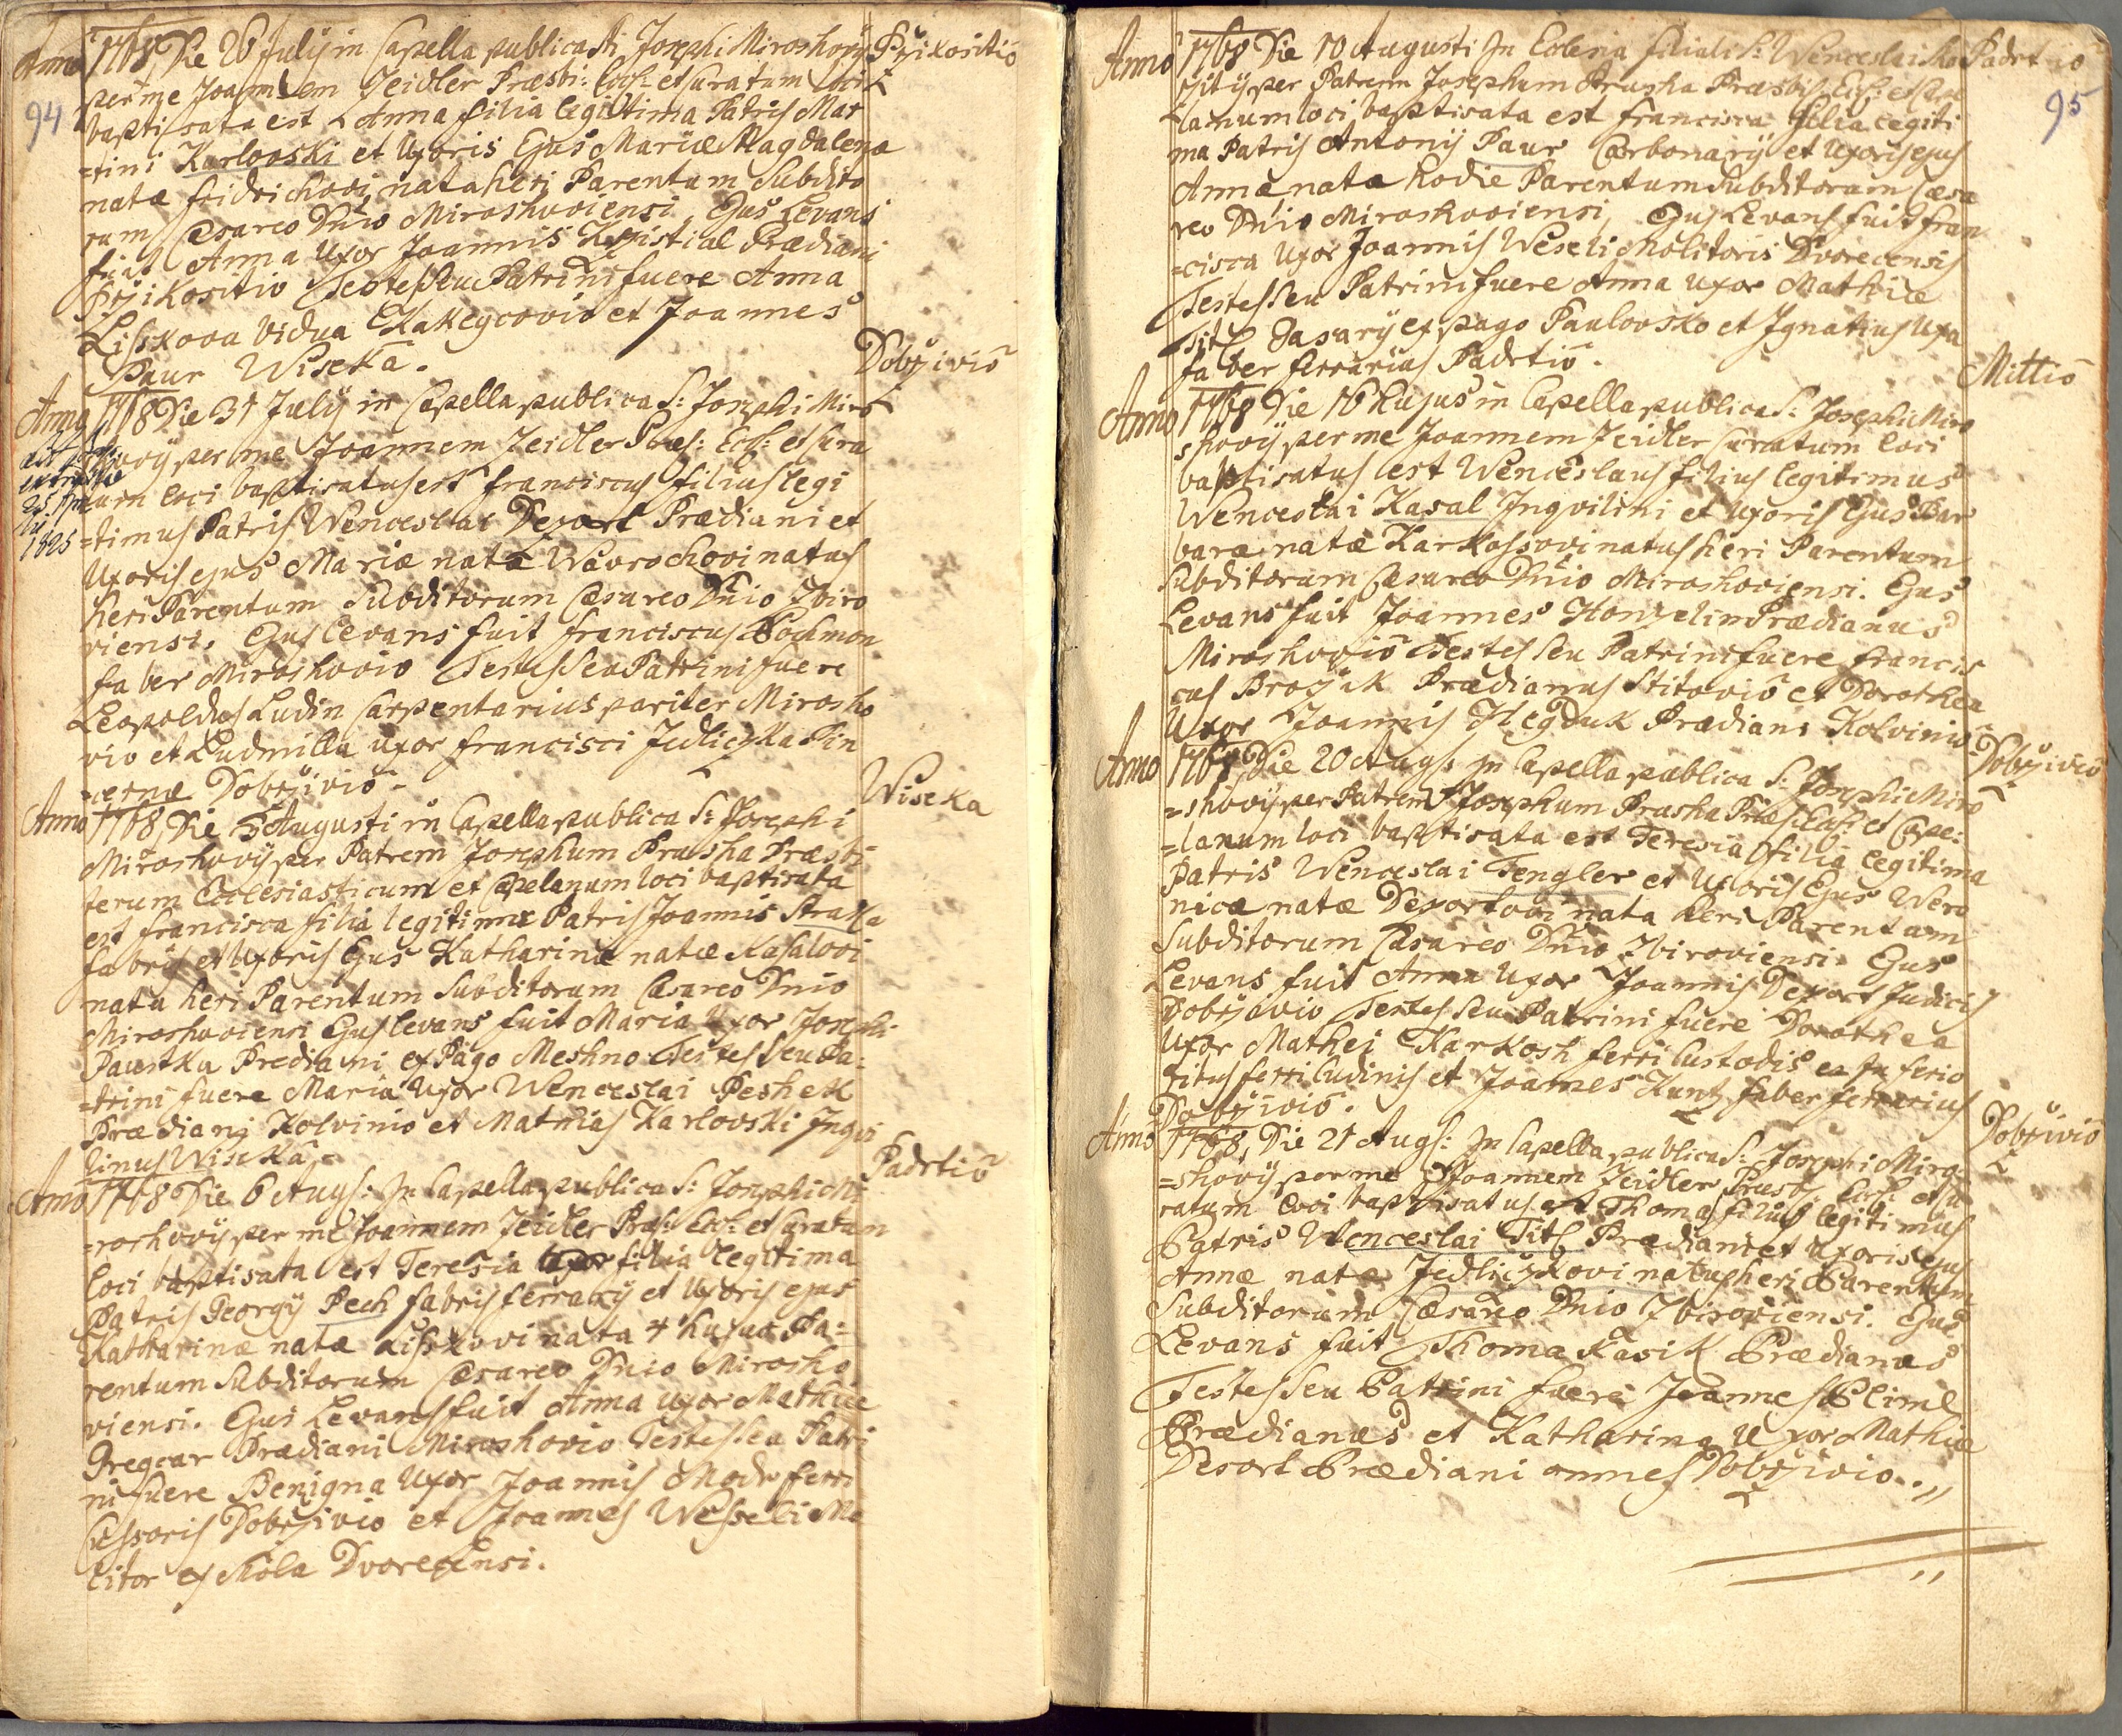 94
Anno 1768 Die 26 July in Capella publica Sti Josephi Miroshovÿ Przikositio
per me Joannem Zeidler Præsbi: Eccl: et Curatum loci
baptisata est Anna filia legitima Patris Mar
=tini Karlovski et Uxoris Ejus Mariæ Magdalena
natæ fridrichovi, nata heri Parentum Subdito
rum Cæsareo Dnio Miroshoviensi, Ejus Levans
fuit Anna Uxor Joannis Prædiani
Przikositio Testes seu Patrini fuere Anna
Lisskova Vidua Kakeycovio et Joannes
Paur Wiseka.
Dobrzivio
Anno 1768 Die 31 July in Capella publica S: Josephi Miro
shovÿ per me Joannem Zeidler Præs: Eccl: et Cura
25.
1825
tum loci baptisatus est franciscus filius legi
=timus Patris Wenceslai Dexort Prædiani et
Uxoris ejus Mariæ natæ Wavrochovi natus
heri Parentum Subditorum Cæsareo Dnio Zbiro
viensi. Ejus Levans fuit franciscus Pochmon
faber Miroshovio Testes seu Patrini fuere
Leopoldus Ludin Carpentarius pariter Mirosho
vio et Ludmilla uxor francisci Jedliczka Pin
=cernæ Dobrzivio.
Wiseka
Anno 1768, Die 5 Augusti in Capella publica S: Josephi
Miroshovÿ per Patrem Josephum Prusha Præsbi
terum Ecclesiasticum et Capelanum loci baptisata
est francisca filia legitima Patris Joannis Straka
fabris et Uxoris Ejus Katharinæ natæ Kasalovi
nata heri Parentum Subditorum Cæsareo Dnio
Miroshoviensi Ejus levans fuit Maria Uxor Josephi
Paustka Prediani ex Pago Meshno Testes seu Pa:
=trini fuere Maria Uxor Wenceslai Peshek
Prædiani Kolvinio et Mathias Karlovski Inqvi
linus Wiseka.
Padrtio
Anno 1768 Die 6 Augs: In Capella publica S: Josephi Mi
=roshovÿ per me Joannem Zeidler Præs: Eccl: et Curatum
loci baptisata est Teresia filia legitima
Patris Georgÿ Pech fabris ferrarÿ et Uxoris ejus
Katharinæ natæ Lisskovi nata 4 hujus Pa:
rentum Subditorum Cæsareo Dnio Mirosho
viensi. Ejus Levans fuit Anna uxor Mathiæ
Gregcar Prædiani Miroshovio Testes seu Patri
ni fuere Benigna Uxor Joannis Modr ferri
Cussoris Dobrzivio et Joannes Wesseli Mo
litor ex Mola Dvorecensi.
95
Anno 1768 Die 10 Augusti In Eclesia filiali S: Wenceslai Sko Padrtio
ritÿ per Patrem Josephum Prusha Præsbi: Eccl: et Cape
lanum loci baptisata est francisca filia legiti
ma Patris Antonÿ Paur Carbonarÿ et Uxoris ejus
Annæ nata hodie Parentum Subditorum Cæsa
reo Dnio Miroshoviensi, Ejus Levans fuit fran
=cisca Uxor Joannis Weseli Molitoris Dvorecensis
Testes seu Patrini fuere Anna uxor Mathiæ
Titl ex pago Paulovsko et Ignatius
faber ferrarius Padrtio.
Mittio
Anno 1768 Die 16 Hujus in Capella publica S: Josephi Miro
shovÿ per me Joannem Zeidler Curatum loci
baptisatus est Wenceslaus filius legitimus
Wenceslai Kasal Inqvilini et Uxoris Ejus Bar
baræ natæ Karkossovi natus heri Parentum
Subditorum Cæsareo Dnio Miroshoviensi. Ejus
Levans fuit Joannes Honzelin Prædianus
Miroshovio Testes seu Patrini fuere francis
cus Brozik Prædianus Stitovio et Dorothea
Uxor Joannis Hegduk Prædiani Kolvinio
Dobrzivio
Anno 1768, Die 20 Augs: In Capella publica S: Josephi Miro
=shovÿ per Patrem Josephum Prusha Præs: Eccl: et Cape:
=lanum loci baptisata est Teresia filia legitima
Patris Wenceslai Tengler et Uxoris Ejus Wero
nicæ natæ Dexortovi nata heri Parentum
Subditorum Cæsareo Dnio Zbiroviensi. Ejus
Levans fuit Anna Uxor Joannis Dexort Judicis
Dobrzivio Testes seu Patrini fuere Dorothea
Uxor Mathei Karkosh ferri Custodis ex Inferio
ritus ferricudinis et Joannes Kuntz faber ferrarius
Dobrzivio.
Dobrzivio
Anno 1768, Die 21 Augs: In Capella publica S: Josephi Miro
=shovÿ per me Joannem Zeidler Præsb: Eccl: et Cu
ratum loci baptisatus est Thomas filius legitimus
Patris Wenceslai Titl Prædiani et Uxoris ejus
Annæ natæ Jedliczkovi natus heri Parentum
Subditorum Cæsareo Dnio Zbiroviensi. Ejus
Levans fuit Thoma Kasik Prædianus
Testes seu Patrini fuere Joannes Pliml
Prædianus et Katharina Uxor Mathiæ
Dexort Prædiani omnes Dobrzivio.